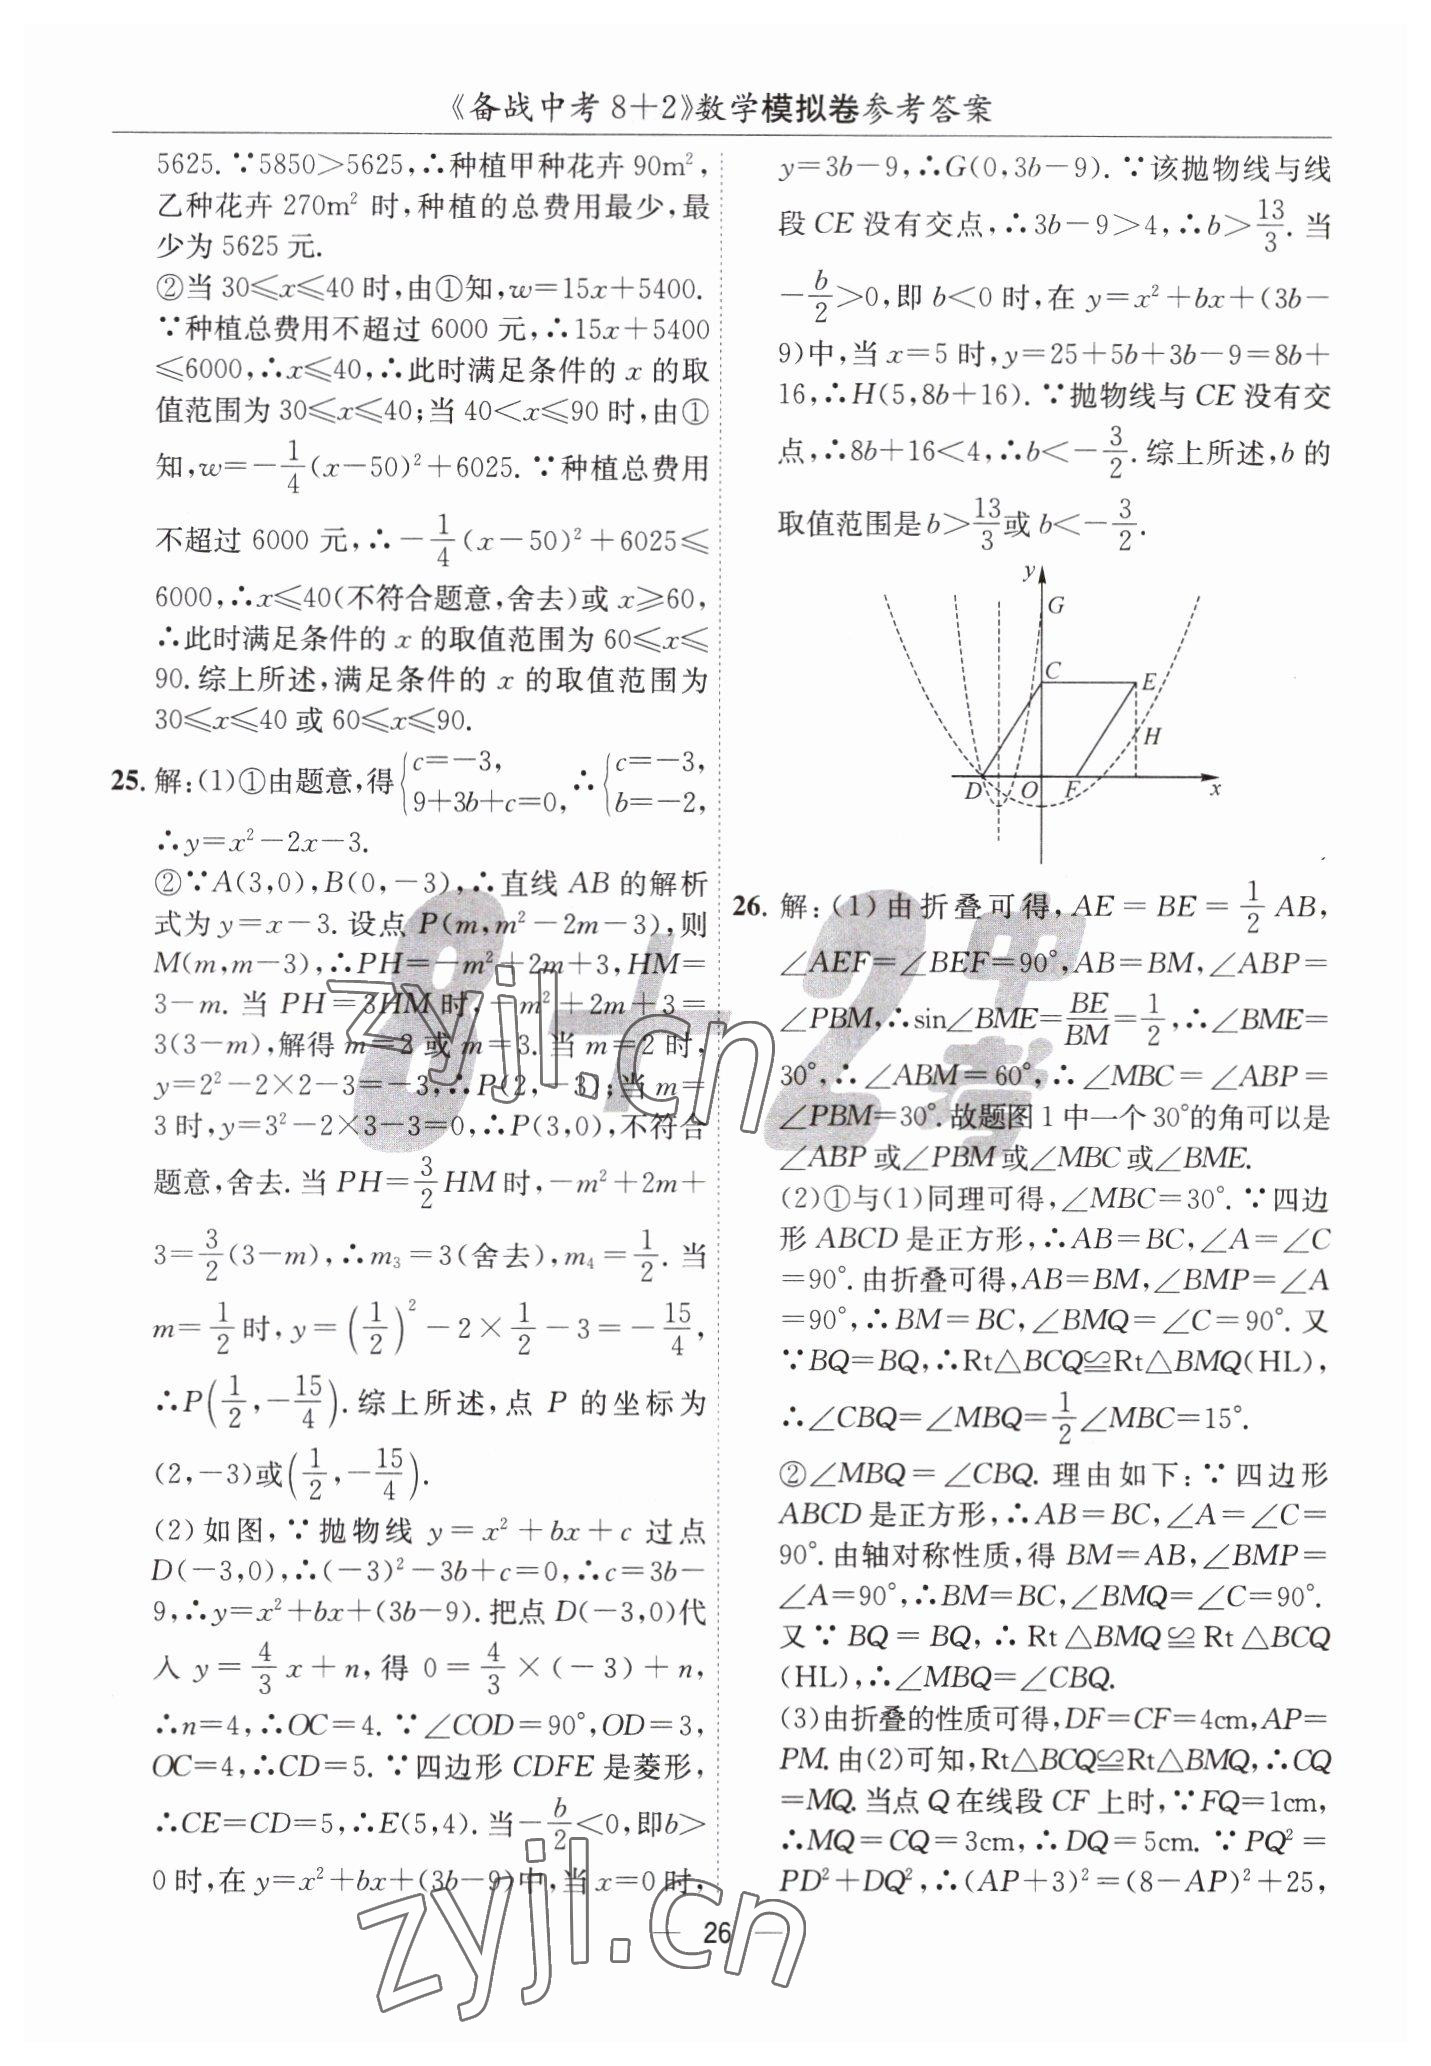 《备战中考 8+2》数学模拟卷参考答案
5625.∵5850>5625,∴种植甲种花卉 90m²,
乙种花卉 270m² 时,种植的总费用最少,最
少为 5625 元.
②当 30≤x≤40 时,由①知,w=15x+5400.
∵种植总费用不超过 6000 元,∴15x+5400
≤6000,∴x≤40,∴此时满足条件的 x 的取
值范围为 30≤x≤40;当 40<x≤90 时,由①
知,w=-1/4(x-50)²+6025.∵种植总费用
不超过 6000 元,∴-1/4(x-50)²+6025≤
6000,∴x≤40(不符合题意,舍去)或 x≥60,
∴此时满足条件的 x 的取值范围为 60≤x≤
90.综上所述,满足条件的 x 的取值范围为
30≤x≤40 或 60≤x≤90.
25. 解:(1)①由题意,得{c=-3, 9+3b+c=0,∴{c=-3, b=-2,
∴y=x²-2x-3.
②∵A(3,0),B(0,-3),∴直线 AB 的解析
式为 y=x-3.设点 P(m,m²-2m-3),则
M(m,m-3),∴PH=-m²+2m+3,HM=
3-m.当 PH=3HM 时,-m²+2m+3=
3(3-m),解得 m=2 或 m=3.当 m=2 时,
y=2²-2×2-3=-3,∴P(2,-3);当 m=
3 时,y=3²-2×3-3=0,∴P(3,0),不符合
题意,舍去.当 PH=3/2HM 时,-m²+2m+
3=3/2(3-m),∴m₃=3(舍去),m₄=1/2.当
m=1/2时,y=(1/2)²-2×1/2-3=-15/4,
∴P(1/2,-15/4).综上所述,点 P 的坐标为
(2,-3)或(1/2,-15/4).
(2)如图,∵抛物线 y=x²+bx+c 过点
D(-3,0),∴(-3)²-3b+c=0,∴c=3b-
9,∴y=x²+bx+(3b-9).把点 D(-3,0)代
入 y=4/3x+n,得 0=4/3×(-3)+n,
∴n=4,∴OC=4.∵∠COD=90°,OD=3,
OC=4,∴CD=5.∵四边形 CDFE 是菱形,
∴CE=CD=5,∴E(5,4).当-b/2<0,即b>
0 时,在 y=x²+bx+(3b-9)中,当 x=0时,
y=3b-9,∴G(0,3b-9).∵该抛物线与线
段 CE 没有交点,∴3b-9>4,∴b>13/3.当
-b/2>0,即 b<0 时,在 y=x²+bx+(3b-
9)中,当 x=5 时,y=25+5b+3b-9=8b+
16,∴H(5,8b+16).∵抛物线与 CE 没有交
点,∴8b+16<4,∴b<-3/2.综上所述,b 的
取值范围是 b>13/3或 b<-3/2.
y
G
C
E
H
D
O
F
x
26. 解:(1)由折叠可得,AE=BE=1/2AB,
∠AEF=∠BEF=90°,AB=BM,∠ABP=
∠PBM,∴sin∠BME=BE/BM=1/2,∴∠BME=
30°,∴∠ABM=60°,∴∠MBC=∠ABP=
∠PBM=30°.故题图 1 中一个 30°的角可以是
∠ABP 或∠PBM 或∠MBC 或∠BME.
(2)①与(1)同理可得,∠MBC=30°.∵四边
形 ABCD 是正方形,∴AB=BC,∠A=∠C
=90°.由折叠可得,AB=BM,∠BMP=∠A
=90°,∴BM=BC,∠BMQ=∠C=90°.又
∵BQ=BQ,∴Rt△BCQ≌Rt△BMQ(HL),
∴∠CBQ=∠MBQ=1/2∠MBC=15°.
②∠MBQ=∠CBQ.理由如下:∵四边形
ABCD 是正方形,∴AB=BC,∠A=∠C=
90°.由轴对称性质,得 BM=AB,∠BMP=
∠A=90°,∴BM=BC,∠BMQ=∠C=90°.
又∵BQ=BQ,∴Rt△BMQ≌Rt△BCQ
(HL),∴∠MBQ=∠CBQ.
(3)由折叠的性质可得,DF=CF=4cm,AP=
PM.由(2)可知,Rt△BCQ≌Rt△BMQ,∴CQ
=MQ.当点 Q 在线段 CF 上时,∵FQ=1cm,
∴MQ=CQ=3cm,∴DQ=5cm.∵PQ²=
PD²+DQ²,∴(AP+3)²=(8-AP)²+25,
8+2中考
zyjl.cn
zyjl.cn
— 26 —